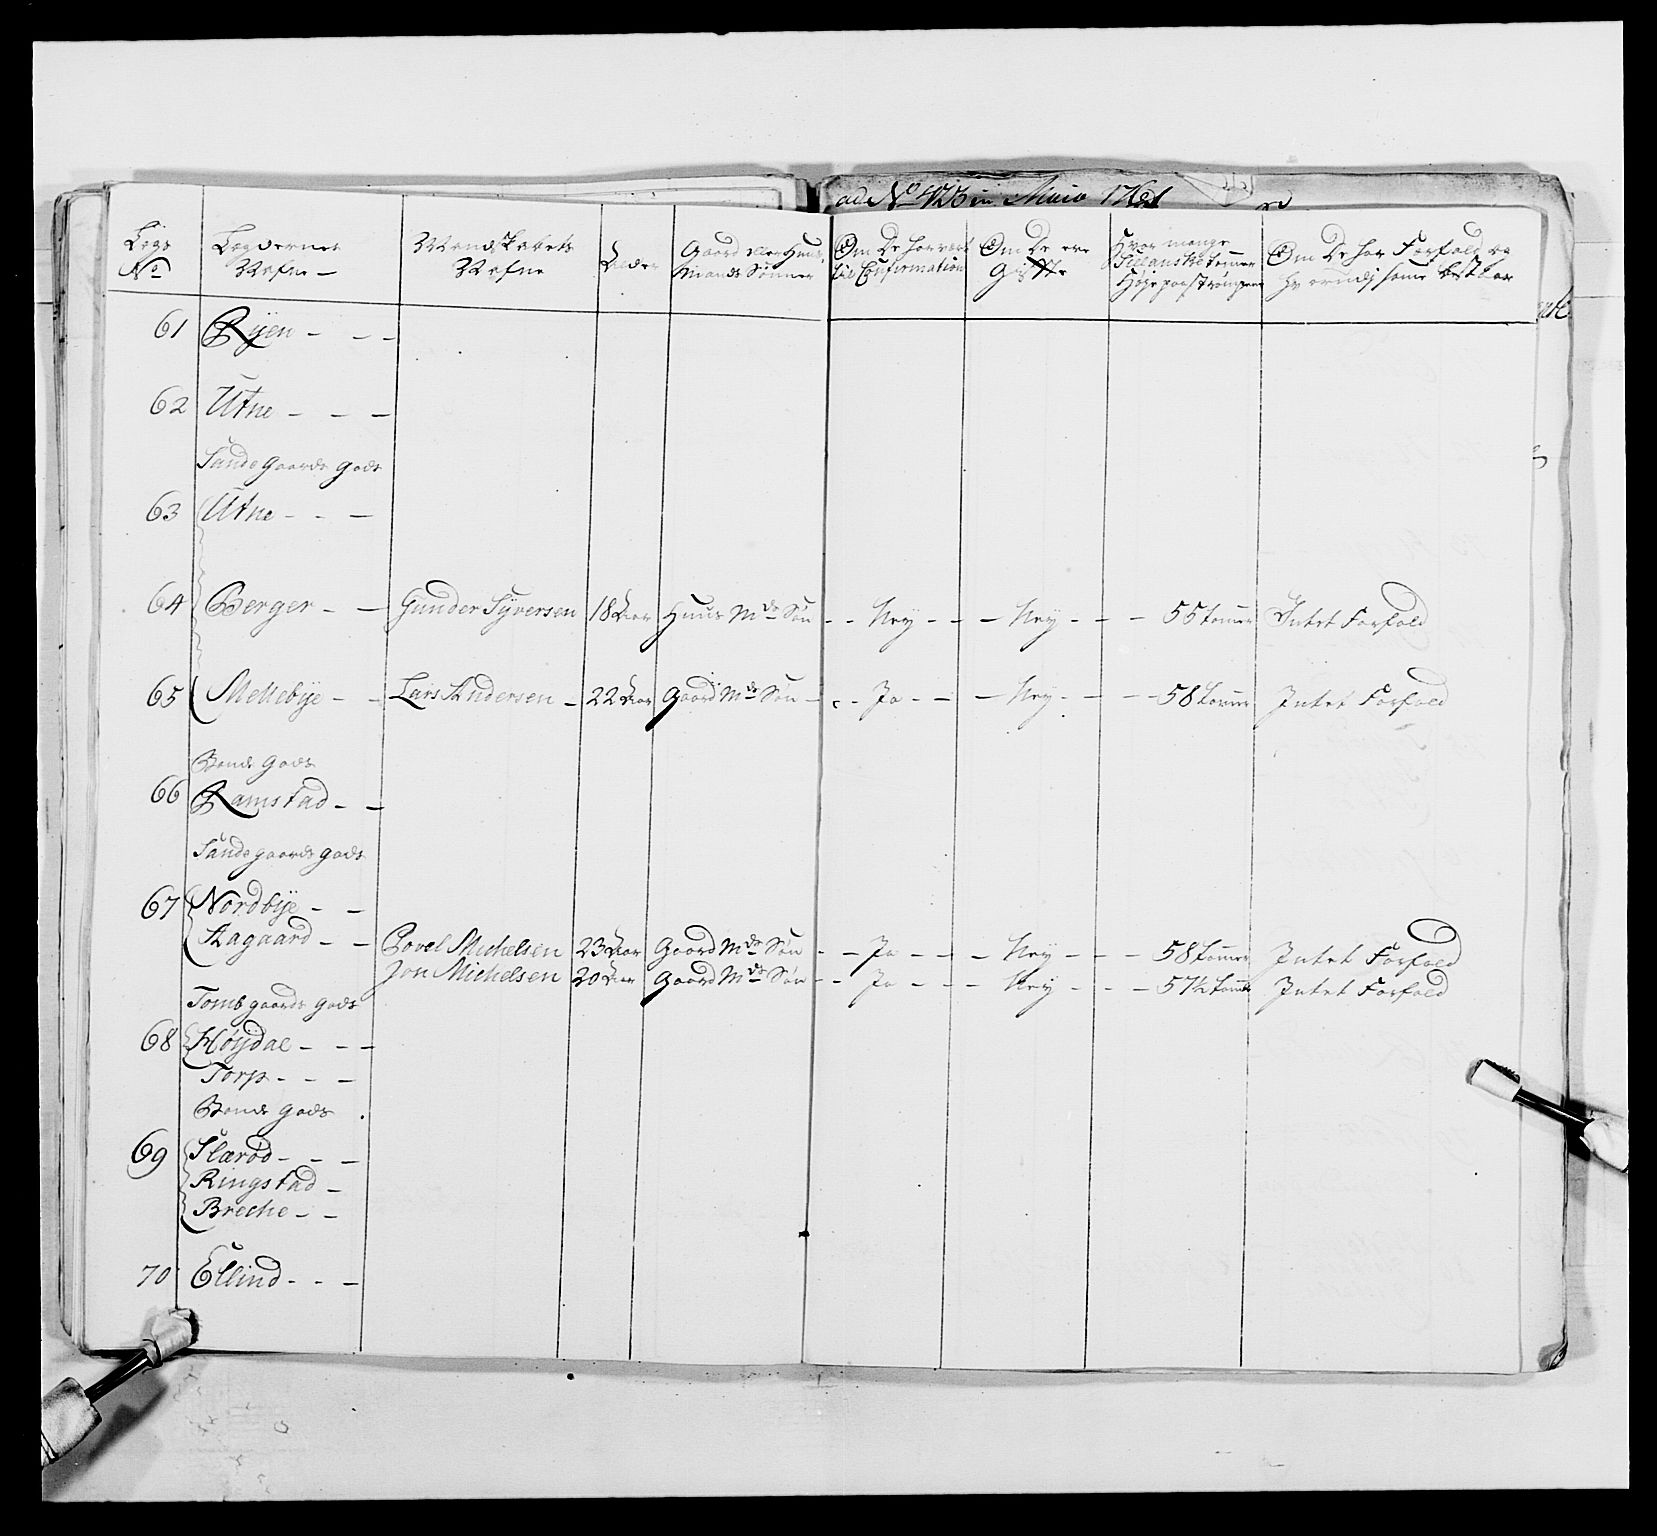 ad No 423 in Maio 1761
Legs No
Legdernes Nafne
Mandskabets Nafne
Alder
Gaard eller Huus Mands Sønner
Om De har vært til Confirmation
Om De ere Gifte
Hvor mange Siellanske tommer Høje paa strømpen
Om De har Forfald og hvorudj samme bestaar
61 Ryen - - -
62 Utne - - -
Sande Gaards Gods
63 Utne - - -
64 Berger - - Gunder Syversen 18 Aar Huus Mds Søn - - Ney - - - Ney - - - 55 tommer Intet Forfald
65 Mellebye - - Lars Andersen - 22 Aar Gaard Mds Søn - - - Ja - - - Ney - - - 58 tommer Intet Forfald
Bonde Gods
66 Ramstad - -
Sande gaards gods
67 Nordbye - -
Aagaard - - Povel Michelsen 23 Aar Gaard Mds Søn - - Ja - - - Ney - - - 58 tommer Intet Forfald
Jon Michelsen 20 Aar Gaard Mds Søn - - Ja - - - Ney - - - 57½ tomme Intet Forfald
Tomb gaards gods
68 Høydal - - -
Torp - - -
Bonde Gods
69 Slærød - - -
Ringstad -
Breche - -
70 Ellind - - -